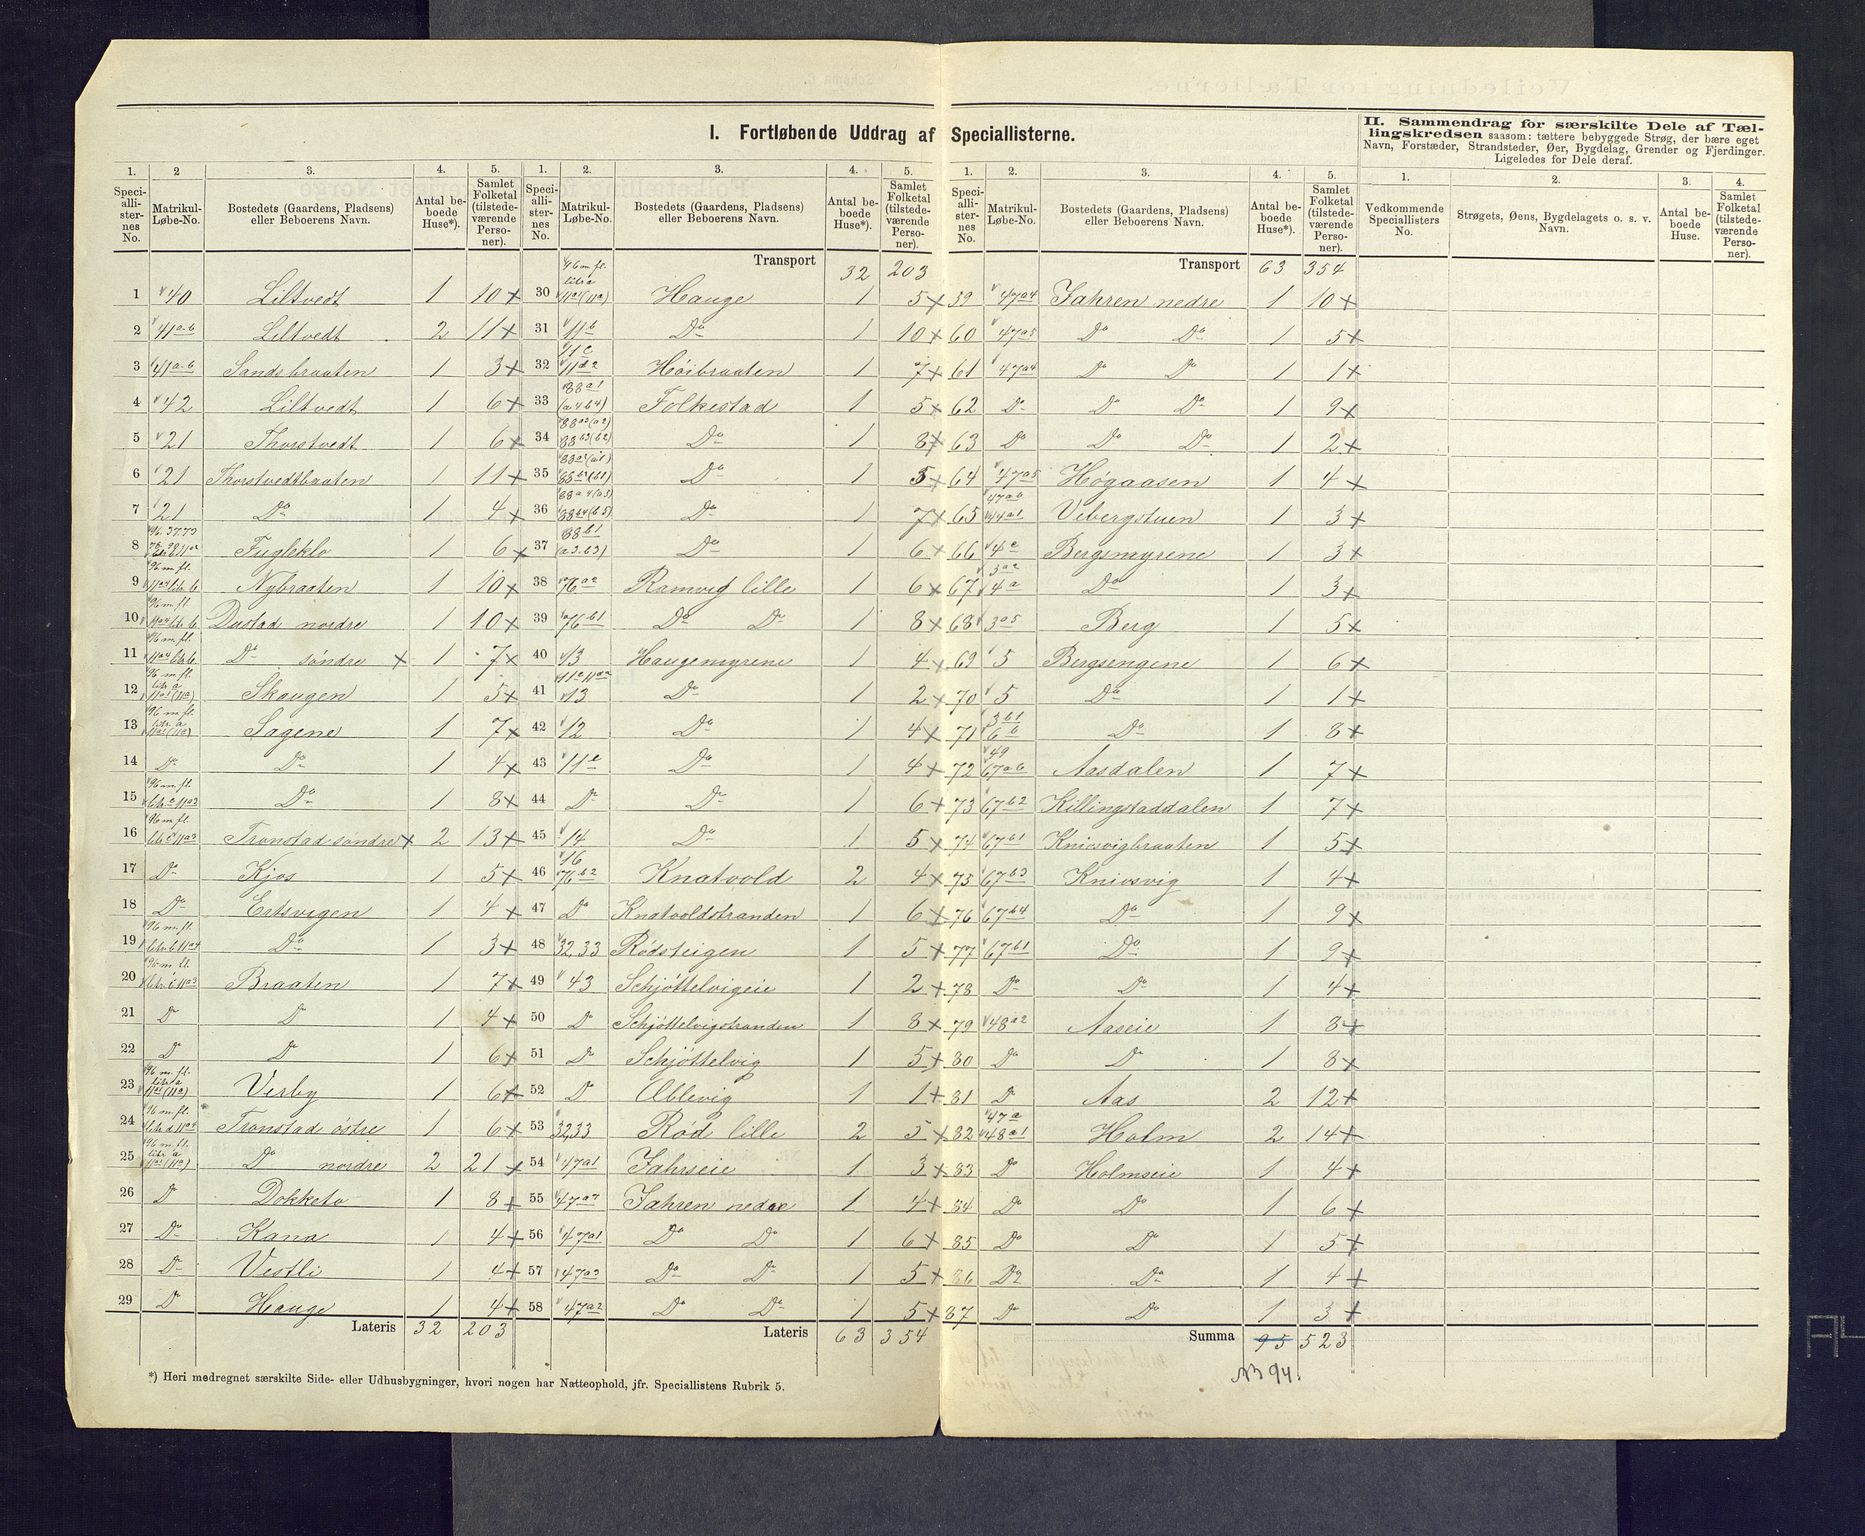 I. Fortløbende Uddrag af Speciallisterne.
II. Sammendrag for særskilte Dele af Tællingskredsen saasom: tættere bebyggede Strøg, der bære eget
Navn, Forstæder, Strandsteder, Øer, Bygdelag, Grender og Fjerdinger.
Ligeledes for Dele deraf.
1. 2 3. 4. 5. 1. 2. 3. 4. 5. 1. 2. 3. 4. 5. 1. 2. 3. 4.
Speciallisternes No. Matrikul-Løbe-No. Bostedets (Gaardens, Pladsens) eller Beboerens Navn. Antal beboede Huse*). Samlet Folketal (tilstedeværende Personer).
Speciallisternes No. Matrikul-Løbe-No. Bostedets (Gaardens, Pladsens) eller Beboerens Navn. Antal beboede Huse*). Samlet Folketal (tilstedeværende Personer).
Speciallisternes No. Matrikul-Løbe-No. Bostedets (Gaardens, Pladsens) eller Beboerens Navn. Antal beboede Huse*). Samlet Folketal (tilstedeværende Personer).
Vedkommende Speciallisters No. Strøgets, Øens, Bygdelagets o. s. v. Navn. Antal beboede Huse. Samlet Folketal (tilstedeværende Personer).
1 40 Liltvedt 1 10 x
2 41 a-b Liltvedt 2 11 x
3 41 a-b Sandsbraaten 1 3 x
4 42 Liltvedt 1 6 x
5 21 Thorstvedt 1 6 x
6 21 Thorstvedtbraaten 1 11 x
7 21 Do 1 4 x
8 Fugleklo 1 6 x
9 Nybraaten 1 10 x
10 Dustad nordre 1 10 x
11 Do søndre x 1 7 x
12 Skaugen 1 5 x
13 Sagene 1 7 x
14 Do Do 1 4 x
15 Do 1 8 x
16 Tronstad søndre x 2 13 x
17 Do Kjos 1 5 x
18 Do Ertsvigen 1 4 x
19 Do 1 3 x
20 Braaten 1 7 x
21 Do Do 1 4 x
22 Do Do 1 6 x
23 Verby 1 6 x
24 Tronstad østre 1 6 x
25 Do nordre 2 21 x
26 Do Dokketo 1 8 x
27 Do Kana 1 4 x
28 Do Vestli 1 4 x
29 Do Hauge 1 4 x
Lateris 32 203
Transport 32 203
30 Hauge 1 5 x
31 11 b Do 1 10 x
32 Høibraaten 1 7 x
33 Folkestad 1 5 x
34 Do 1 8 x
35 Do 1 5 x
36 Do 1 7 x
37 Do 1 6 x
38 76 a2 Ramvig lille 1 6 x
39 76 b1 Do Do 1 8 x
40 13 Haugemyrene 1 4 x
41 13 Do 1 2 x
42 12 Do 1 4 x
43 11 e Do 1 4 x
44 Do Do 1 6 x
45 14 Do 1 5 x
46 16 76 b2 Knatvold 2 4 x
47 Do Knatvoldstranden 1 6 x
48 32,33 Rødsteigen 1 5 x
49 43 Schjøttelvigeie 1 2 x
50 Do Schjøttelvigstranden 1 8 x
51 Do Schjøttelvig 1 5 x
52 Do Æblevig 1 1 x
53 32,33 Rød lille 2 5 x
54 47 a1 Jahreie 1 3 x
55 Jahren nedre 1 4 x
56 47 a1 Do Do 1 6 x
57 47 a3 Do Do 1 5 x
58 47 a2 Do Do 1 5 x
Lateris 63 354
Transport 63 354
59 47 a4 Jahren nedre 1 10 x
60 47 a5 Do Do 1 5 x
61 47 a4 Do Do 1 1 x
62 Do Do Do 1 9 x
63 Do Do Do 1 2 x
64 47 a5 Høgaasen 1 4 x
65 Vebergstuen 1 3 x
66 4 c Bergsmyrene 1 3 x
67 3 a2 4 a Do 1 3 x
68 3 a5 Berg 1 5 x
69 5 Bergsengene 1 6 x
70 5 Do 1 1 x
71 3 b1 6 b Do 1 8 x
72 49 67 a b Aasdalen 1 7 x
73 67 b2 Killingstaddalen 1 7 x
74 67 b1 Knivsvigbraaten 1 5 x
75 67 b3 Knivsvig 1 4 x
76 67 b4 Do 1 9 x
77 67 b1 Do 1 9 x
78 Do Do 1 4 x
79 48 a2 Aaseie 1 8 x
80 Do Do 1 8 x
81 Do Aas 2 12 x
82 47 a 48 a1 Holm 2 14 x
83 Do Holmseie 1 4 x
84 Do Do 1 6 x
85 Do Do 1 5 x
86 Do Do 1 4 x
87 Do Do 1 3 x
Summa 95 523
NB 94.
*) Heri medregnet særskilte Side- eller Udhusbygninger, hvori nogen har Natteophold, jfr. Speciallistens Rubrik 5.